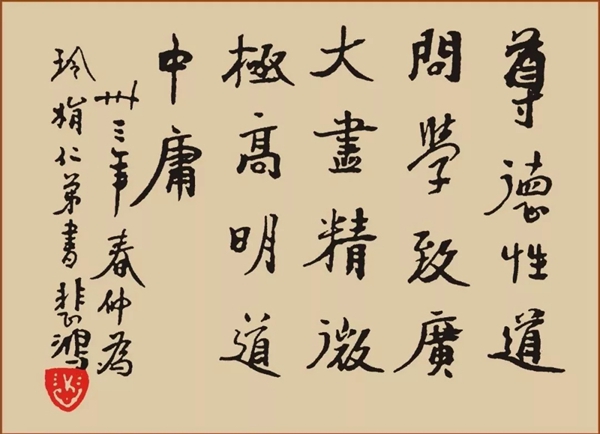 尊德性道
問學致廣
大盡精微
極高明道
中庸
卅三年春仲為
玲仁弟書悲鴻